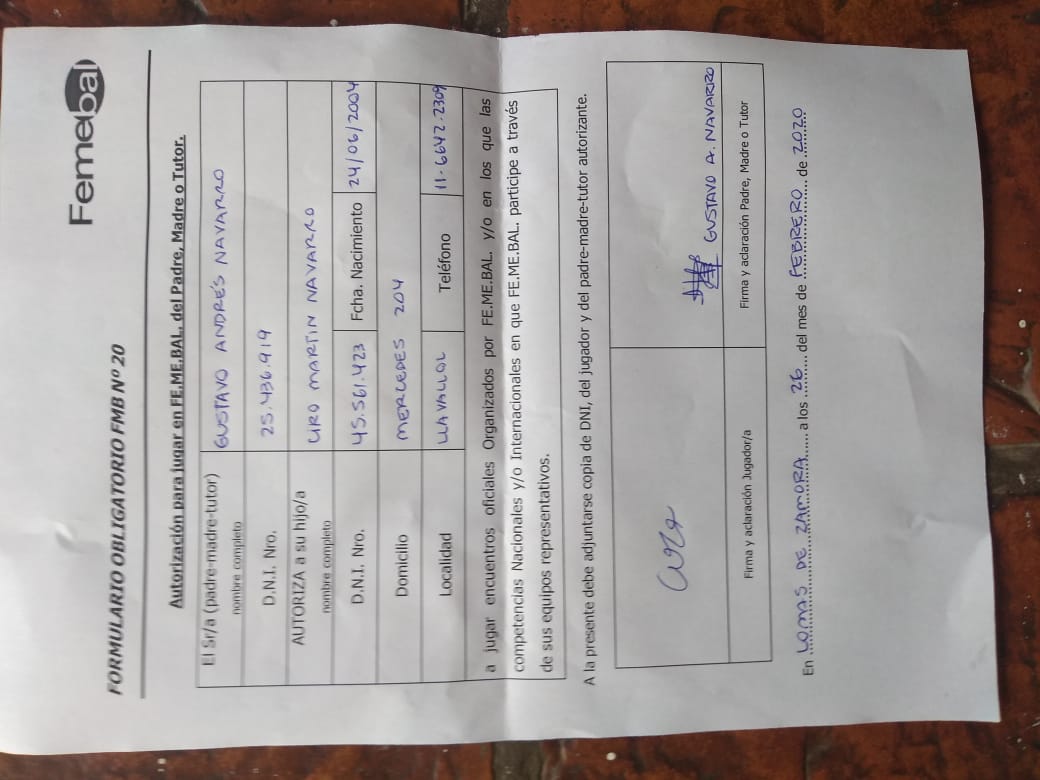 Femebal
FORMULARIO OBLIGATORIO FMB Nº 20
Autorización para jugar en FE.ME.BAL, del Padre, Madre o Tutor.
El Sr/a (padre-madre-tutor) GUSTAVO ANDRÉS NAVARRO
nombre completo
D.N.I. Nro. 25.436.919
AUTORIZA a su hijo/a MARTIN NAVARRO
nombre completo
D.N.I. Nro. 45.561.423 Fcha. Nacimiento 24/06/2004
Domicilio MERCEDES 204
Localidad LLAVALLOL Teléfono 11-6642-2309
a jugar encuentros oficiales Organizados por FE.ME.BAL. y/o en los que las
competencias Nacionales y/o Internacionales en que FE.ME.BAL. participe a través
de sus equipos representativos.
A la presente debe adjuntarse copia de DNI, del jugador y del padre-madre-tutor autorizante.
GUSTAVO A. NAVARRO
Firma y aclaración Jugador/a Firma y aclaración Padre, Madre o Tutor
En LOMAS DE ZAMORA a los 26 del mes de FEBRERO de 2020